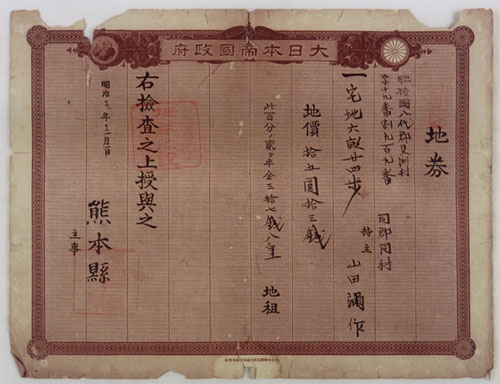 大日本帝國政府
地券
肥後國八代郡
九百九番
同郡同村
持主 山田彌作
一宅地六畝廿四歩
地價 拾五圓拾三錢
此百分ノ貳ヶ半金三拾七錢八厘 地租
右檢査之上授與之
明治十三年十二月一日
熊本縣
主事